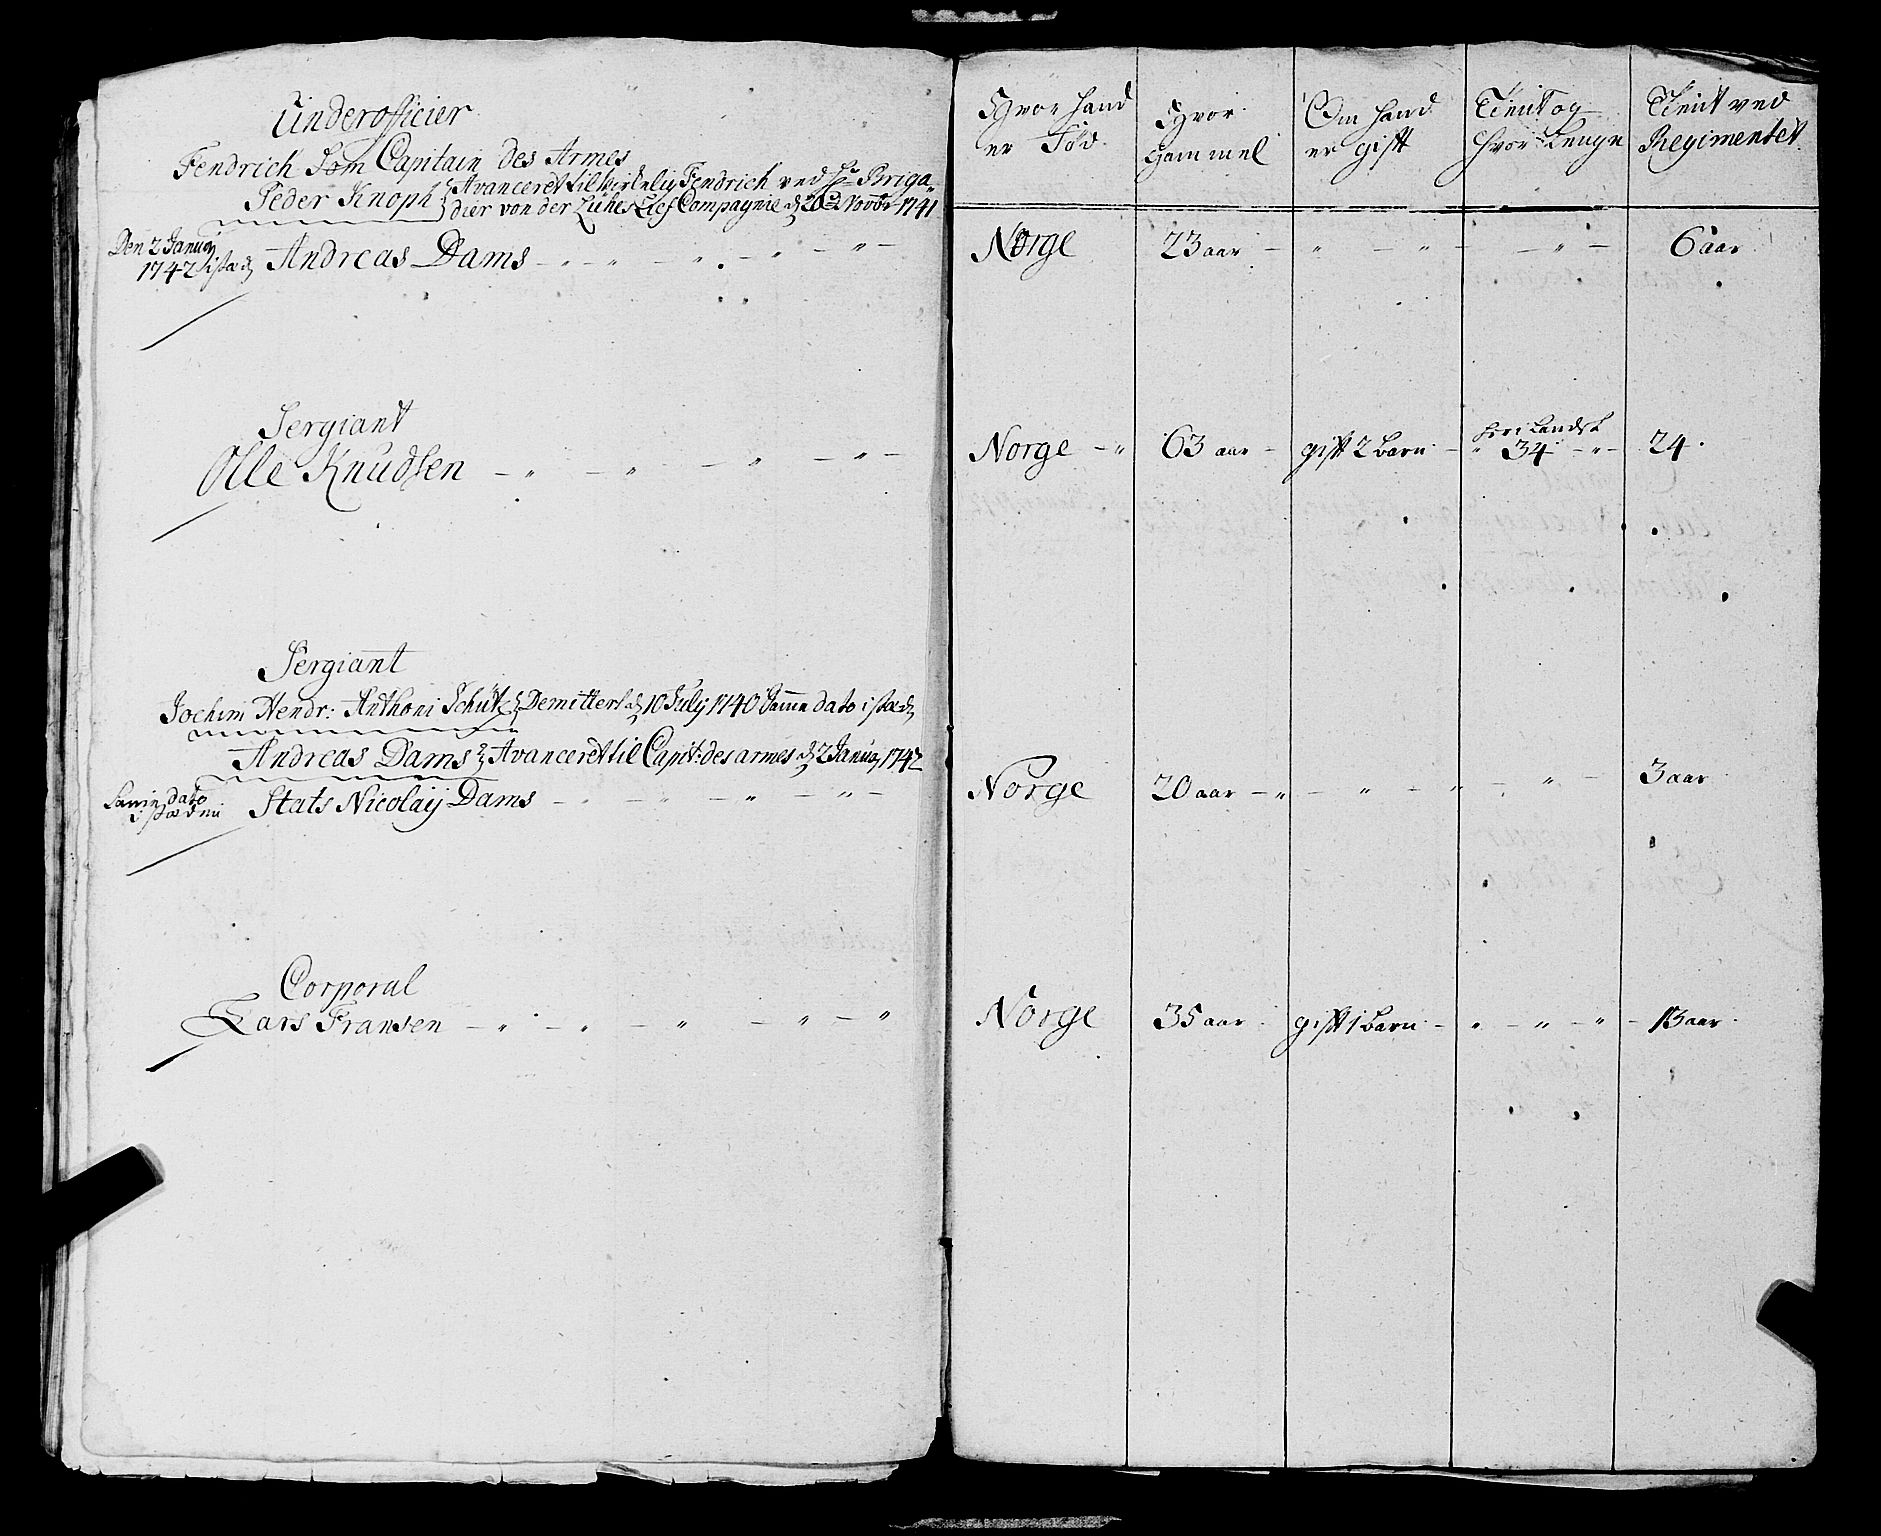 Underofficier
Fendrich Som Capitain des Armes
Peder Knoph Avanceret til virkelig Fendrich ved Hr Briga-
dier von der Lühes Lief Compagnie d 20de Novbr 1741
Den 2 Januarij
1742 i stæd Andreas Dams
Sergiant
Olle Knudsen
Sergiant
Jochim Hendr: Anthoni Schütz Demitteret d 10 July 1740 Samme dato i stæd
Andreas Dams Avanceret til Capit: des armes d 2 Januarij 1742
Samme dato
i stæd nu Stats Nicolaij Dams
Corporal
Lars Fransen
Hvor hand
er Fød
Hvor
gammel
Om hand
er gift
Tient og
hvor Lenge
Tient ved
Regimentet
Norge 23 aar 6 aar
Norge 63 aar gift 2 barn 34 24
Norge 20 aar 3 aar
Norge 35 aar gift 1 barn 13 aar